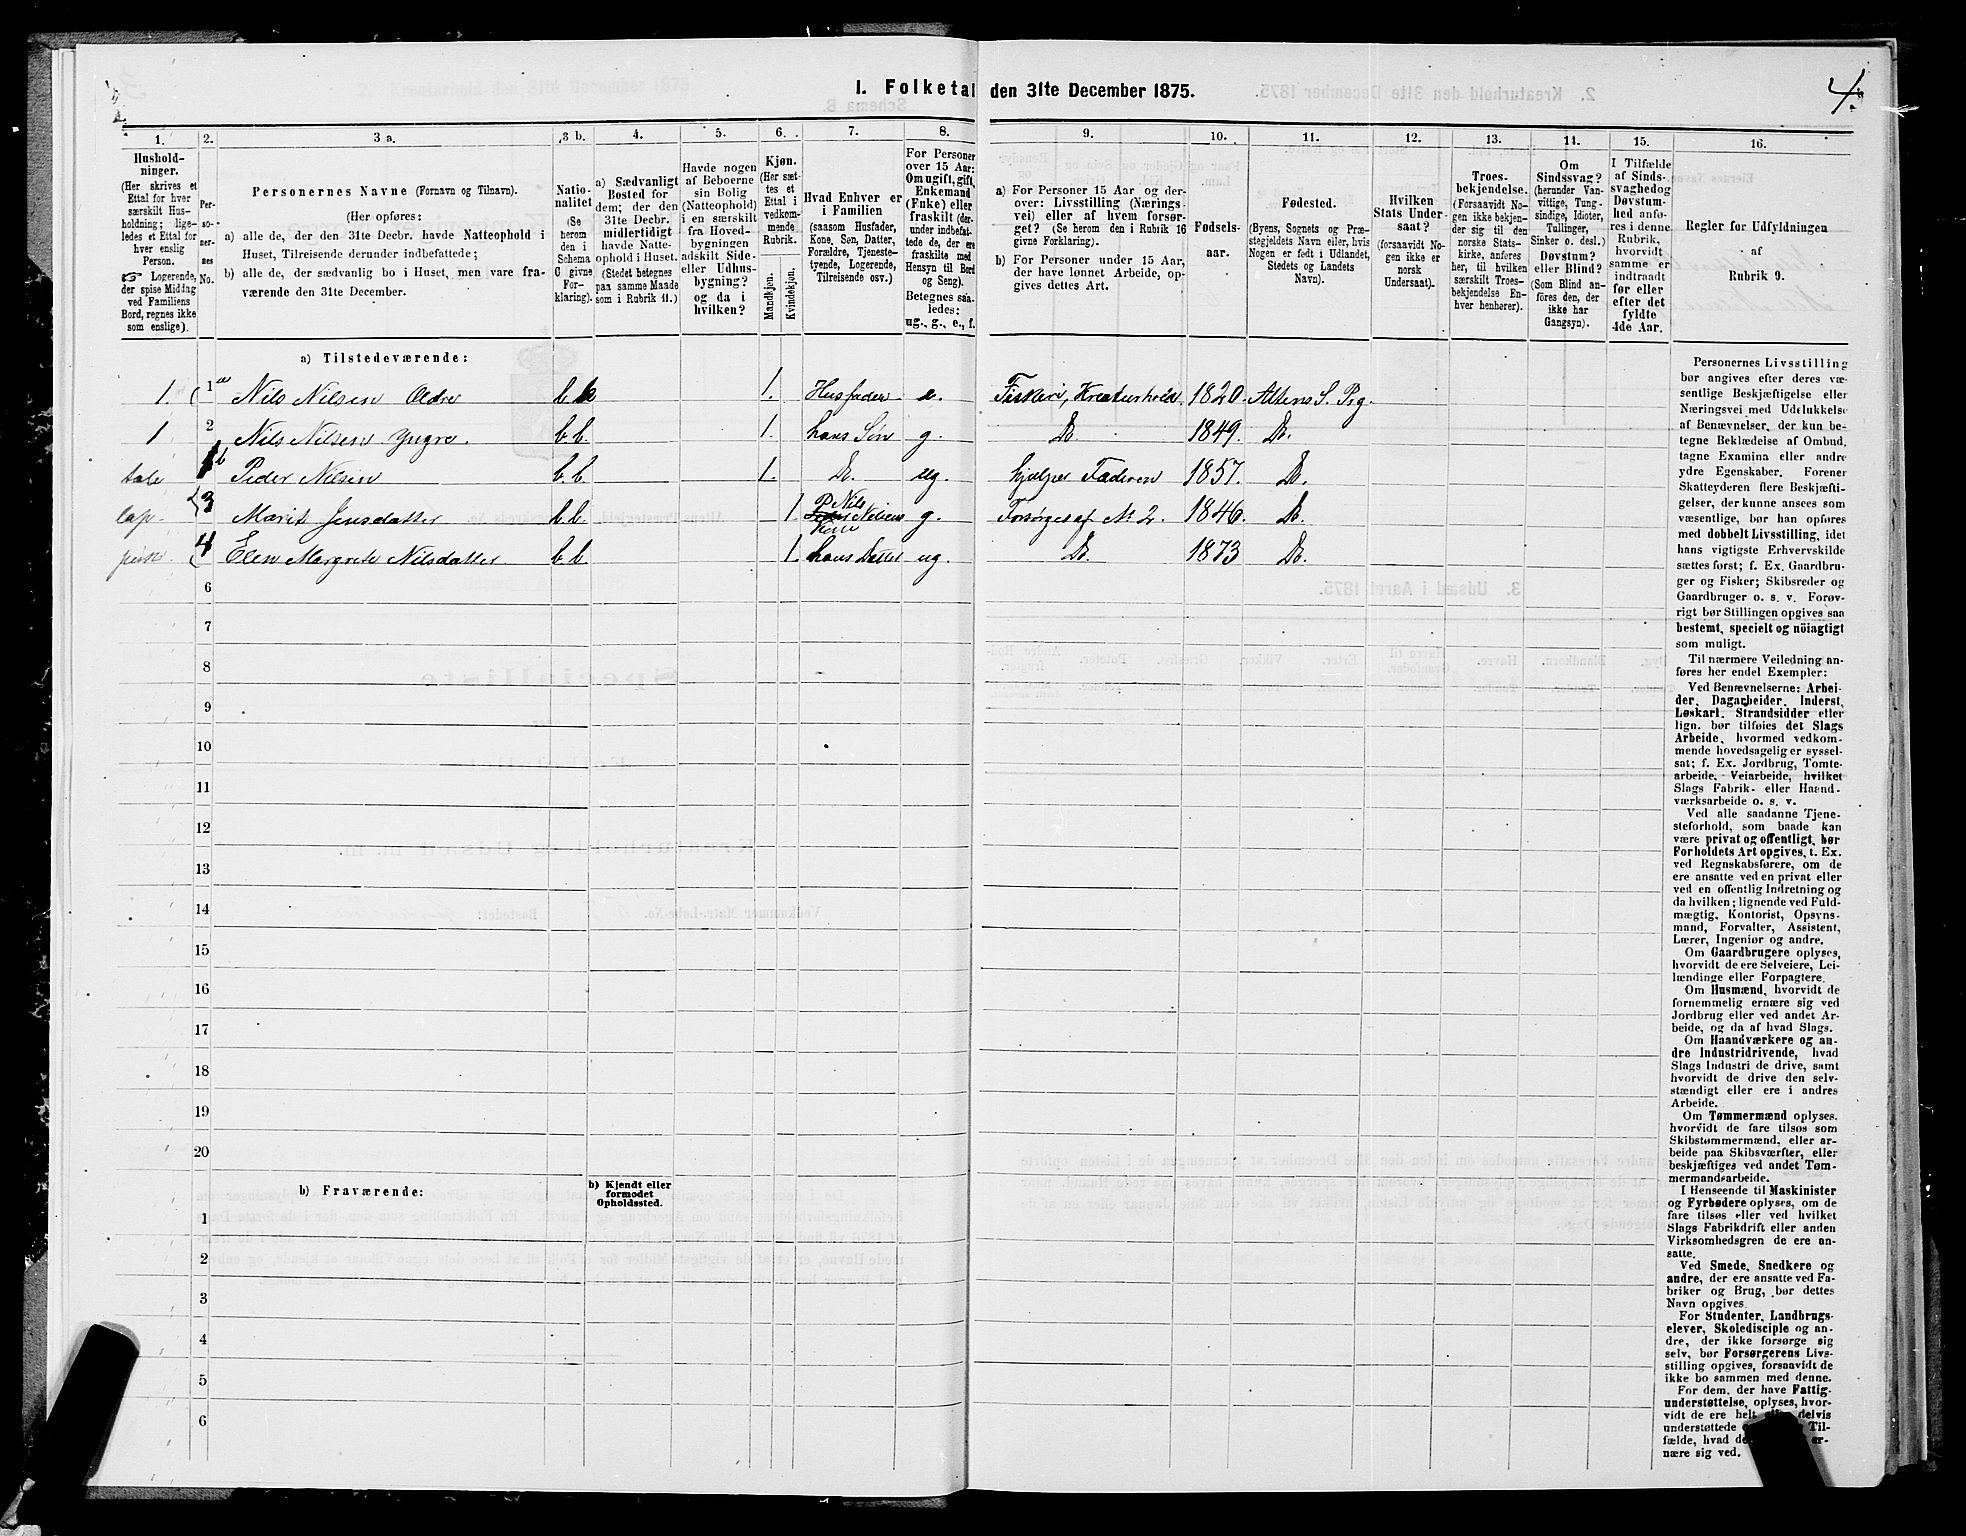 1. Folketal den 31te December 1875.
4.
1. 2. 3 a. 3 b. 4. 5. 6. 7. 8. 9. 10. 11. 12. 13. 14. 15. 16.
Hushold-
ninger.
(Her skrives et
Ettal for hver
særskilt Hus-
holdning; lige-
ledes et Ettal for
hver enslig
Person.
☞ Logerende,
der spise Middag
ved Familiens
Bord, regnes ikke
som enslige).
Per-
so-
ner-
nes
No.
Personernes Navne (Fornavn og Tilnavn).
(Her opføres:
a) alle de, der den 31te Decbr. havde Natteophold i
Huset, Tilreisende derunder indbefattede;
b) alle de, der sædvanlig bo i Huset, men vare fra-
værende den 31te December.
Natio-
nalitet
(Se
herom
den i
Schema
C givne
For-
klaring).
a) Sædvanligt
Bosted for
dem; der den
31te Decbr.
midlertidigt
havde Natte-
ophold i Huset.
(Stedet betegnes
paa samme Maade
som i Rubrik 11.)
Havde nogen
af Beboerne
sin Bolig
(Natteophold)
i en særskilt
fra Hoved-
bygningen
adskilt Side-
eller Udhus-
bygning?
og da i
hvilken?
Kjøn.
(Her sæt-
tes et
Ettal i
vedkom-
mende
Rubrik.
Mandkjøn.
Kvindekjøn.
Hvad Enhver er
i Familien
(saasom Husfader,
Kone, Søn, Datter,
Forældre, Tjeneste-
tyende, Logerende,
Tilreisende osv.)
For Personer
over 15 Aar:
Om ugift, gift,
Enkemand
(Enke) eller
fraskilt (der-
under indbefat-
tede de, der ere
fraskilte med
Hensyn til Bord
og Seng).
Betegnes saa-
ledes:
ug., g., e., f.
a) For Personer 15 Aar og der-
over: Livsstilling (Nærings-
vei) eller af hvem forsør-
get? (Se herom den i Rubrik 16
givne Forklaring).
b) For Personer under 15 Aar,
der have lønnet Arbeide, op-
gives dettes Art.
Fødsels-
aar.
Fødested.
(Byens, Sognets og Præ-
stegjeldets Navn eller, hvis
Nogen er født i Udlandet,
Stedets og Landets
Navn).
Hvilken
Stats Under-
saat?
(forsaavidt No-
gen ikke er
norsk
Undersaat).
Troes-
bekjendelse.
(Forsaavidt No-
gen ikke bekjen-
der sig til den
norske Stats-
kirke, anføres
her, til hvilken
særskilt Troes-
bekjendelse En-
hver henhører).
Om
Sindssvag?
(herunder Van-
vittige, Tung-
sindige, Idioter,
Tullinger,
Sinker o. desl.)
Døvstum?
eller Blind?
(Som Blind an-
føres den, der
ikke har
Gangsyn).
I Tilfælde
af Sinds-
svaghed og
Døvstum-
hed anfø-
res i denne
Rubrik,
hvorvidt
samme er
indtraadt
før eller
efter det
fyldte
4de Aar.
Regler for Udfyldningen
af
Rubrik 9.
a) Tilstedeværende:
1 1 a Nils Nilsen Ældre b b 1. Husfader e. Fiskeri, Kreaturhold. 1820. Altens S. Prg.
1 2 Nils Nilsen Yngre. b.b. 1. hans Søn g. Do. 1849. Do.
tale b Peder Nilsen b.b. 1. Do. ug. hjelper Faderen 1857. Do.
lap- 3 Marit Jensdatter b.b. 1. Nils Nilsens Kone g. Forsørges af No 2. 1846. Do.
4 Elen Margrete Nilsdatter. b.b. 1. hans Datter ug. Do. 1873 Do.
6
7
8
9
10
11
12
13
14
15
16
17
18
19
20
b) Fraværende:
b) Kjendt eller
formodet
Opholdssted.
1
2
3
4
5
6
Personernes Livsstilling
bør angives efter deres væ-
sentlige Beskjæftigelse eller
Næringsvei med Udelukkelse
af Benævnelser, der kun be-
tegne Beklædelse af Ombud,
tagne Examina eller andre
ydre Egenskaber. Forener
Skatteyderen flere Beskjæfti-
gelser, der kunne ansees som
væsentlige, bør han opføres
med dobbelt Livsstilling, idet
hans vigtigste Erhvervskilde
sættes først; f. Ex. Gaardbru-
ger og Fisker; Skibsreder og
Gaardbruger o. s. v. Forøv-
rigt bør Stillingen opgives saa
bestemt, specielt og nöiagtigt
som muligt.
Til nærmere Veiledning an-
føres her endel Exempler:
Ved Benævnelserne: Arbei-
der, Dagarbeider, Inderst,
Løskarl, Strandsidder eller
lign. bør tilføies det Slags
Arbeide, hvormed vedkom-
mende hovedsagelig er syssel-
sat; f. Ex. Jordbrug, Tomte-
arbeide, Veiarbeide, hvilket
Slags Fabrik- eller Haand-
værksarbeide o. s. v.
Ved alle saadanne Tjene-
steforhold, som baade kan
være privat og offentligt, bør
Forholdets Art opgives, t. Ex.
ved Regnskabsførere, om de
ere ansatte ved en privat eller
ved en offentlig Indretning og
da hvilken; lignende ved Fuld-
mægtig, Kontorist, Opsyns-
mand, Forvalter, Assistent,
Lærer, Ingeniør og andre.
Om Gaardbrugere oplyses,
hvorvidt de ere Selveiere, Lei-
lændinge eller Forpagtere.
Om Husmænd, hvorvidt de
fornemmelig ernære sig ved
Jordbrug eller ved andet Ar-
beide, og da af hvad Slags.
Om Haandværkere og an-
dre Industridrivende, hvad
Slags Industri de drive, samt
hvorvidt de drive den selv-
stændigt eller ere i andres
Arbeide.
Om Tømmermænd oplyses,
hvorvidt de fare tilsøs som
Skibstømmermænd, eller ar-
beide paa Skibsværfter, eller
beskjæftiges ved andet Tøm-
mermandsarbeide.
I Henseende til Maskinister
og Fyrbødere oplyses, om de
fare tilsøs eller ved hvilket
Slags Fabrikdrift eller anden
Virksomhedsgren de ere an-
satte.
Ved Smede, Snedkere og
andre, der ere ansatte ved Fa-
briker og Brug, bør dettes
Navn opgives.
For Studenter, Landbrugs-
elever, Skoledisciple og an-
dre, der ikke forsørge sig
selv, bør Forsørgerens Livs-
stilling opgives, forsaavidt de
ikke bo sammen med denne.
For dem, der have Fattig-
understøttelse, oplyses, hvor-
vidt de ere helt delvis
understøttede Til-
fælde, hvad de er-
nære sig ved.